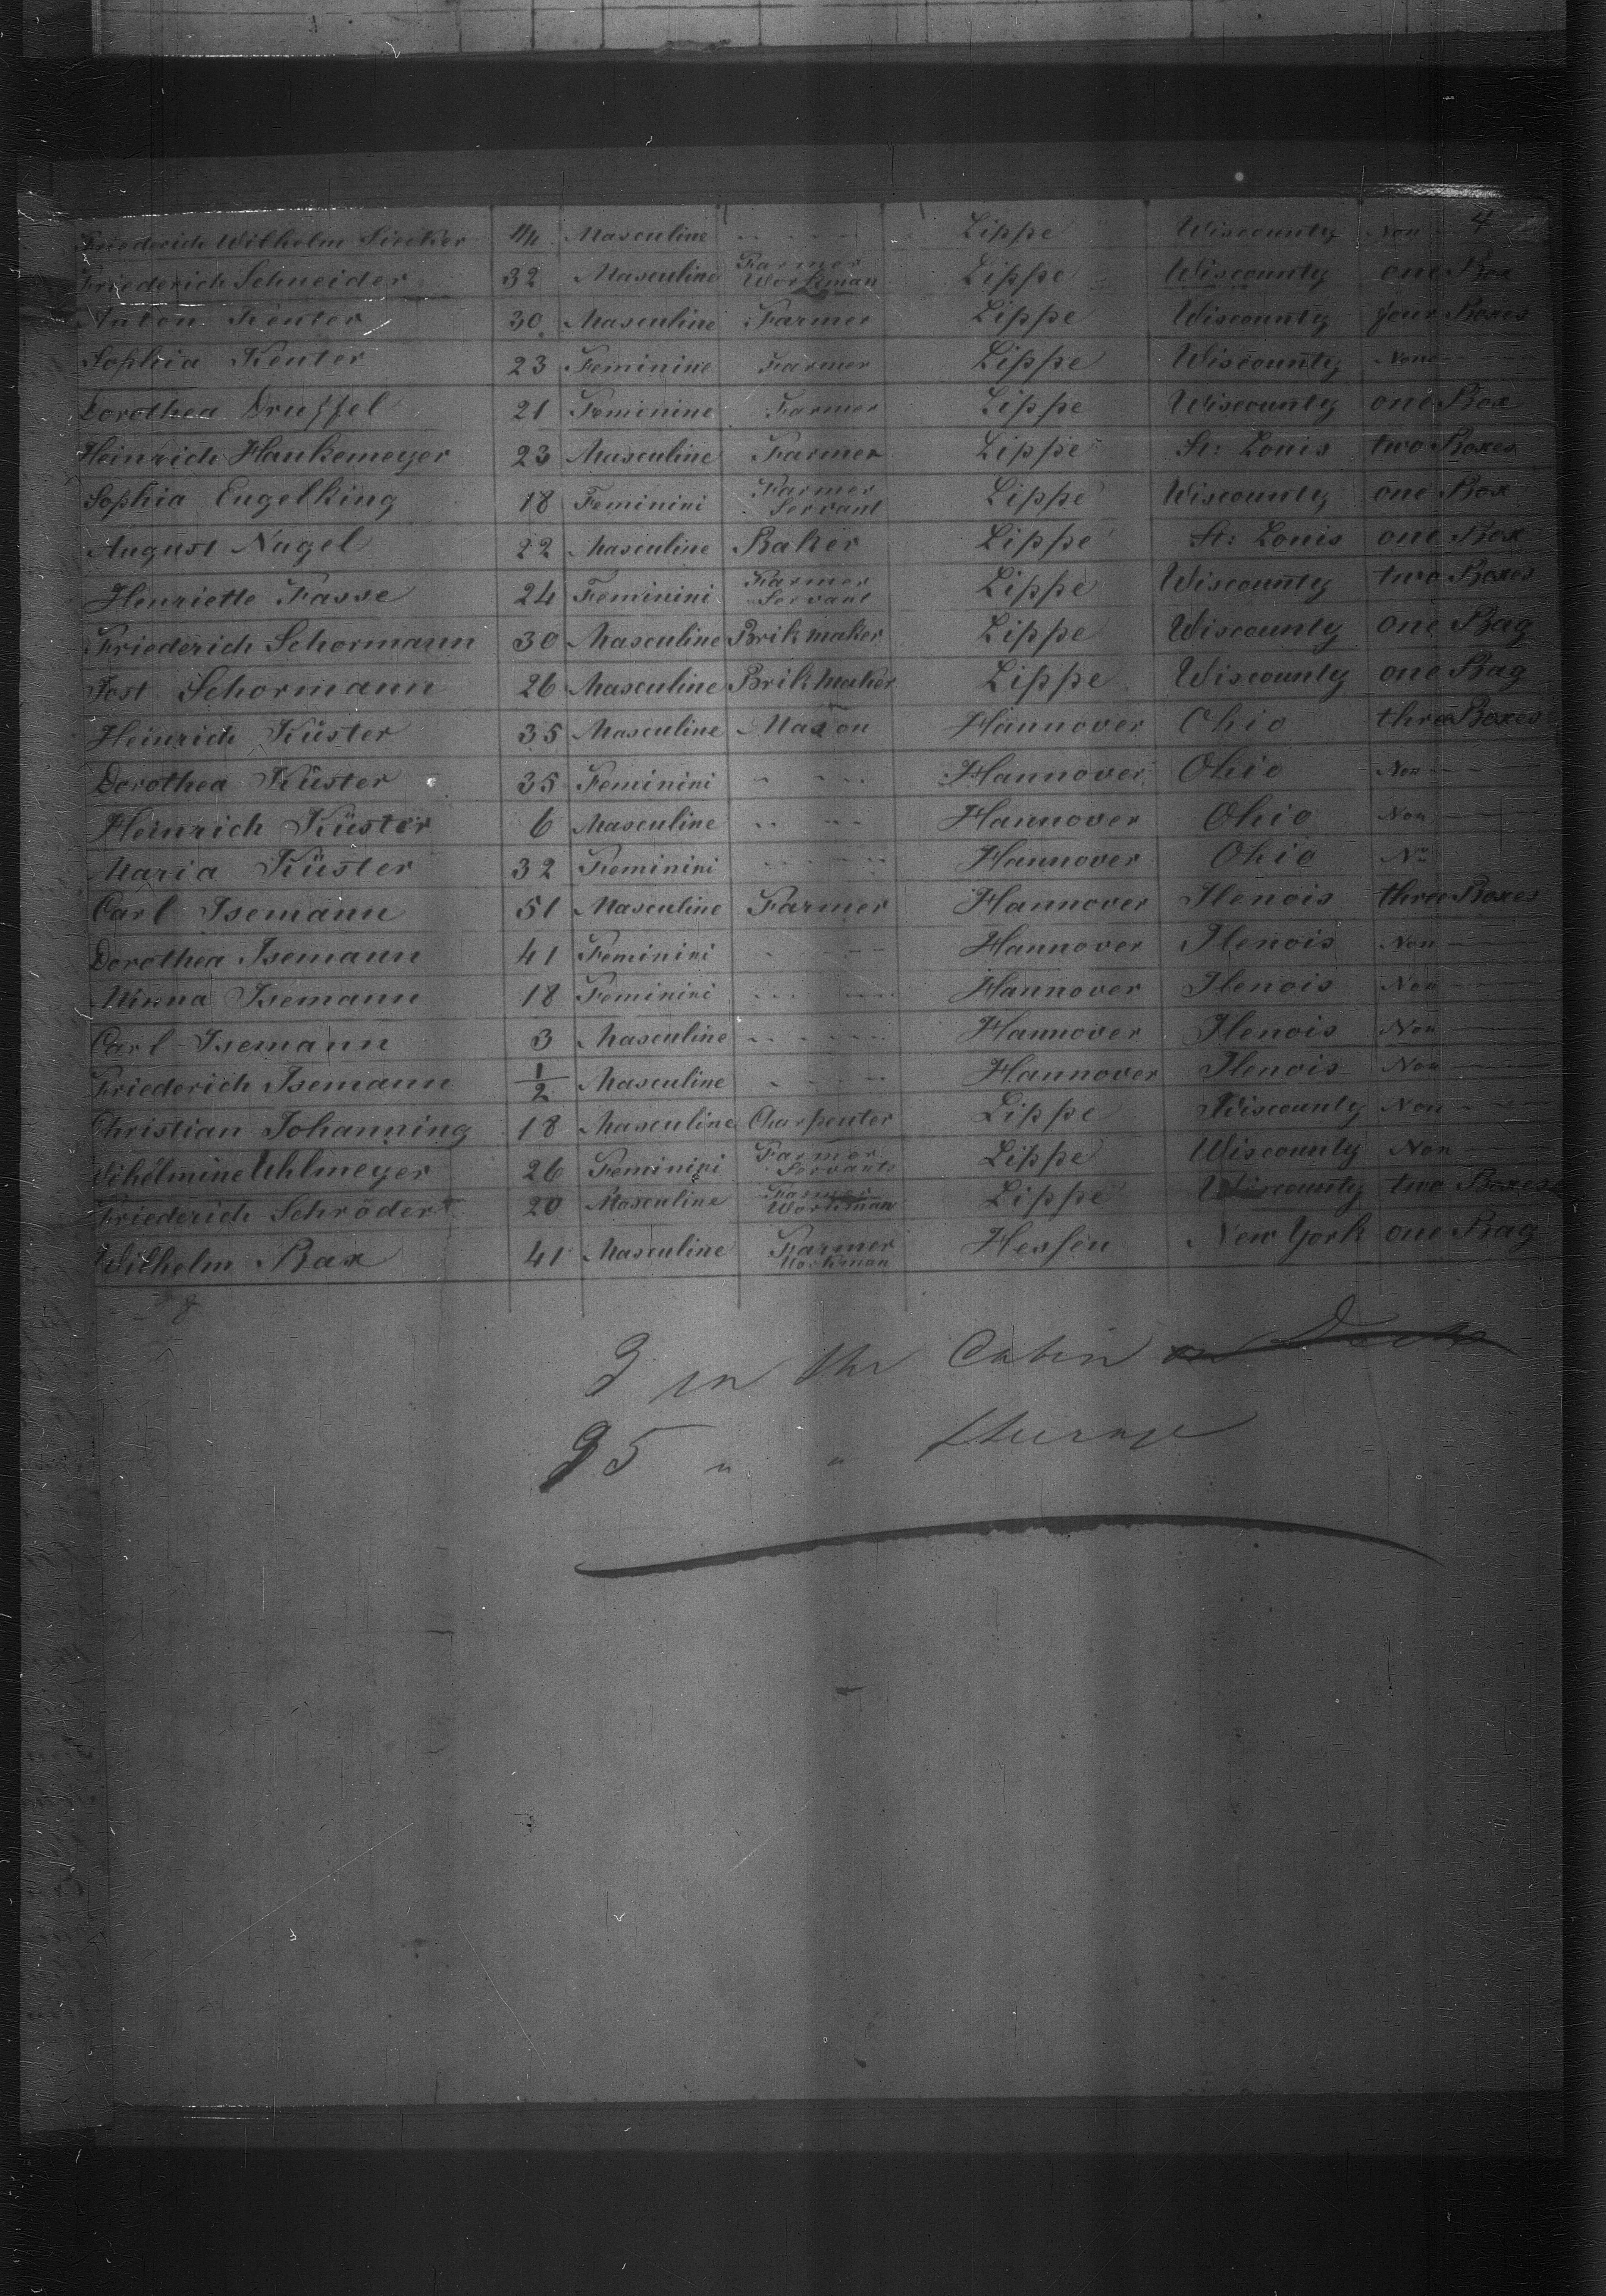 4
Friederich Wilhelm Siecker Masculine Lippe Wiscounty Non
Friederich Schneider 32 Masculine Farmer Workman Lippe Wiscounty one Box
Anton Keuter 30 Masculine Farmer Lippe Wiscounty four Boxes
Sophia Keuter 23 Feminine Farmer Lippe Wiscounty None
Dorothea Druffel 21 Feminine Farmer Lippe Wiscounty one Box
Heinrich Haukemeyer 23 Masculine Farmer Lippe St: Louis two Boxes
Sophia Engelking 18 Feminini Farmer Servant Lippe Wiscounty one Box
August Nagel 22 Masculine Baker Lippe St: Louis one Box
Henriette Fasse 24 Feminini Farmer Servant Lippe Wiscounty two Boxes
Friederich Schormann 30 Masculine Brikmaker Lippe Wiscounty one Bag
Jost Schormann 26 Masculine Brikmaker Lippe Wiscounty one Bag
Heinrich Küster 35 Masculine Mason Hannover Ohio three Boxes
Dorothea Küster 35 Feminini Hannover Ohio Non
Heinrich Küster 6 Masculine Hannover Ohio Non
Maria Küster 32 Feminini Hannover Ohio No
Carl Isemann 51 Masculine Farmer Hannover Ilenois three Boxes
Dorothea Isemann 41 Feminini Hannover Ilenois Non
Minna Isemann 18 Feminini Hannover Ilenois Non
Carl Isemann 3 Masculine Hannover Ilenois Non
Friederich Isemann 1/2 Masculine Hannover Ilenois Non
Christian Johanning 18 Masculine Charpenter Lippe Wiscounty Non
Wihélmine Uhlmeyer 26 Feminini Farmer Servante Lippe Wiscounty Non
Friederich Schröder 20 Masculine Farmer Workman Lippe Wiscounty two Boxes
Wilhelm Bax 41 Masculine Farmer Workman Hessen New York one Bag
3 in the Cabin on Deck
95 " " steerage